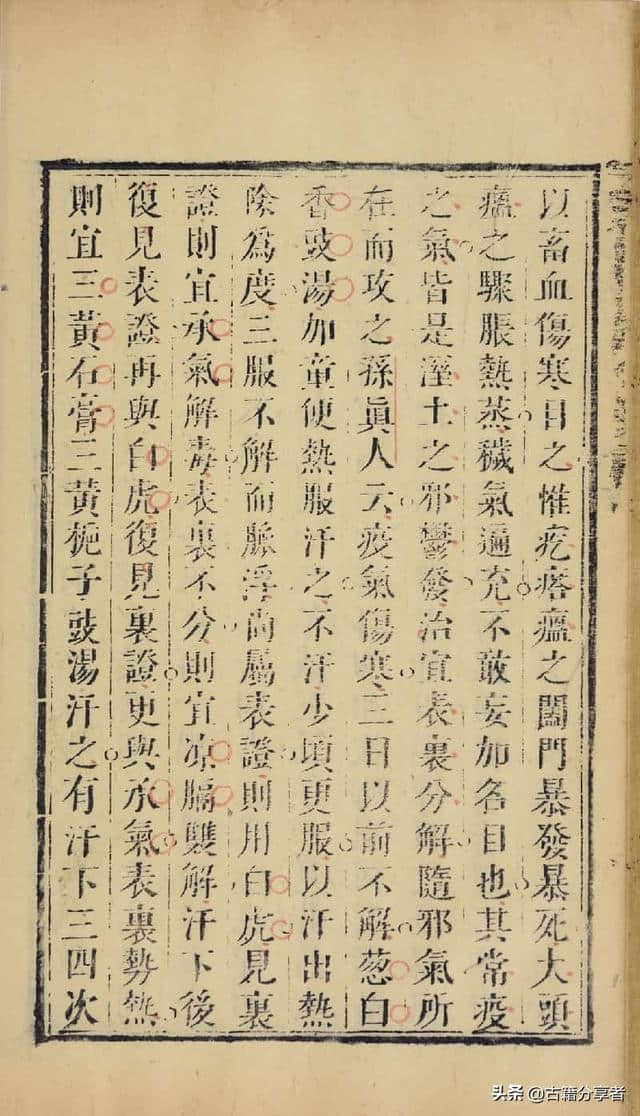 以畜血傷寒目之惟疙瘩瘟之闔門暴發暴死大頭
瘟之驟脹熱蒸穢氣遍充不敢妄加名目也其常疫
之氣皆是溼土之邪鬱發治宜表裏分解隨邪氣所
在而攻之孫眞人云疫氣傷寒三日以前不解葱白
香豉湯加童便熱服汗之不汗少頃更服以汗出熱
除為度三服不解而脈浮尚屬表證則用白虎見裏
證則宜承氣解毒表裏不分則宜凉膈雙解汗下後
復見表證再與白虎復見裏證更與承氣表裏勢熱
則宜三黃石膏三黃梔子豉湯汗之有汗下三四次
头条 @古籍分享者